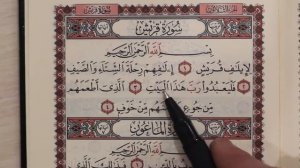 سُورَةُ قُرَيْشٍ
بِسْمِ اللَّهِ الرَّحْمَٰنِ الرَّحِيمِ
لِإِيلَٰفِ قُرَيْشٍ ١ إِۦلَٰفِهِمْ رِحْلَةَ الشِّتَاءِ وَالصَّيْفِ
٢ فَلْيَعْبُدُوا رَبَّ هَٰذَا الْبَيْتِ ٣ الَّذِي أَطْعَمَهُم
مِّن جُوعٍ وَءَامَنَهُم مِّنْ خَوْفٍ ٤
سُورَةُ الْمَاعُونِ
بِسْمِ اللَّهِ الرَّحْمَٰنِ الرَّحِيمِ